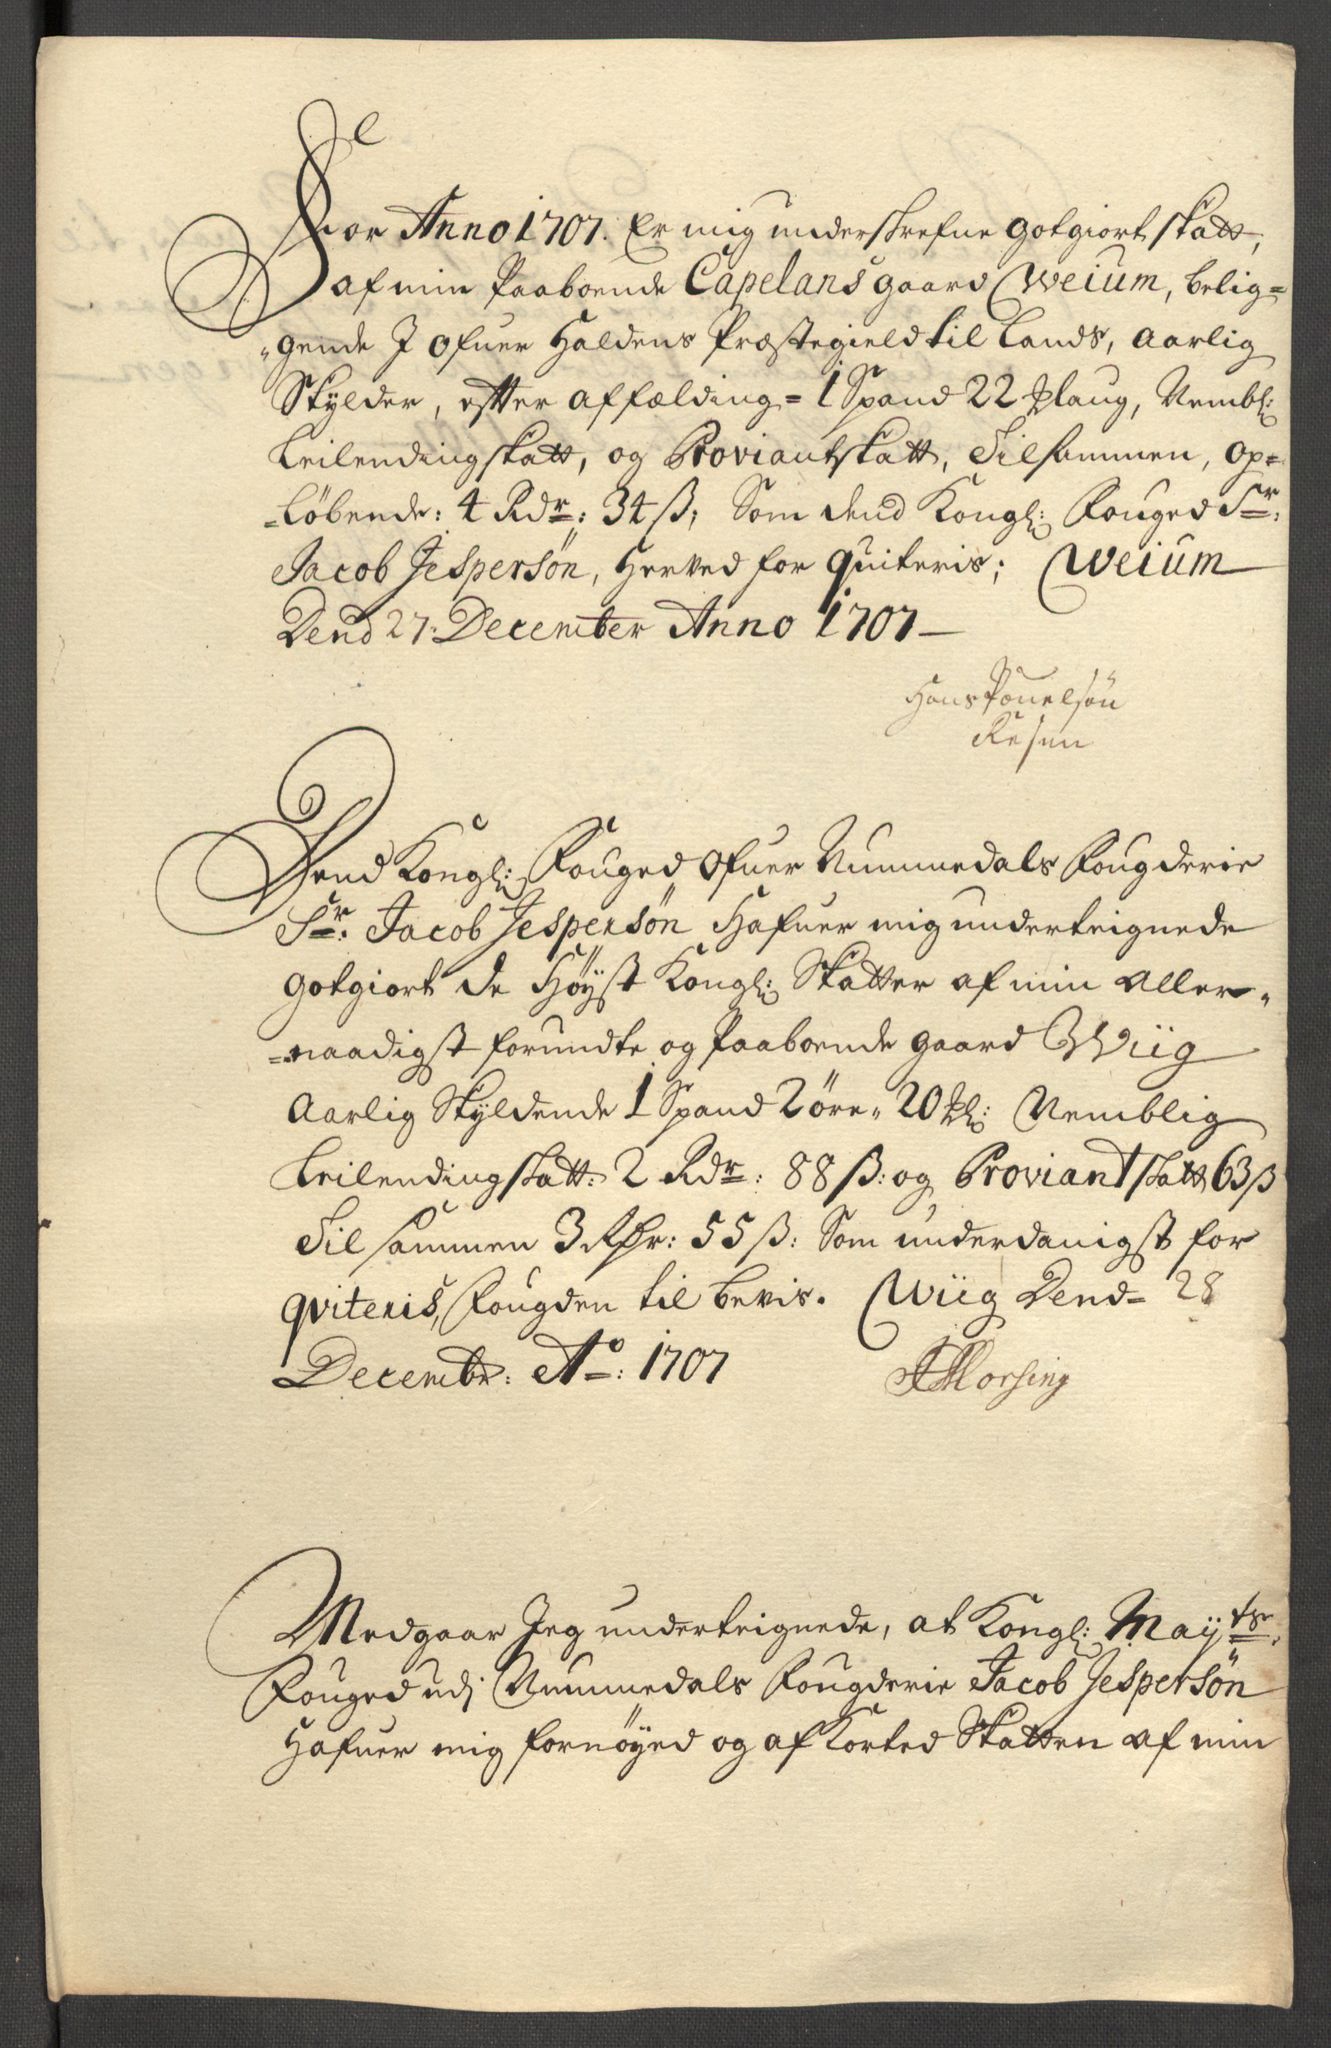 For Anno 1707. Er mig underskrefne gotgiort skatt,
af min Paaboende Capelans gaard Weium, belig=
=gende J Ofuer Haldens Præstegield til Lands, aarlig
Skylder, efter affælding = 1 Spand 22 Mklaug, Nembl:
Leilendingskatt, og Proviantskatt, Tilsammen, op=
=løbende: 4 Rdr: 34 ß; Som dend Kongl: Fouged Sr.
Jacob Jespersøn, Herved for quiteris; Weium
Dend 27: December Anno 1707
Hans Pouelsøn
Resen
Dend Kongl: Fouged Ofuer Nummedals Fougderie
Sr. Jacob Jespersøn Hafuer mig underteignede
gotgiort de Høyst Kongl: Skatter af min aller=
=naadigst forundte og Paaboende gaard Wiig
Aarlig Skyldende 1 Spand 2 øre 20 Mkl: Nemblig
Leilendingskatt: 2 Rdr: 88 ß: og Proviantskatt 63 ß
Tilsammen 3 Rdr: 55 ß: Som underdanigst for
qviteris, Fougden til bevis. Wiig Dend= 28
Decembr: Ao: 1707
Morsing
Medgaar Jeg underteignede, at Kongl: Mayts.
Fouged udj Nummedals Fougderie Jacob Jespersøn
Hafuer mig fornøyed og afkorted Skatten af min